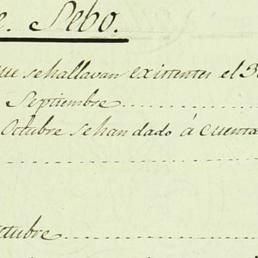 e. Sebo.
que se hallavan existentes el 3
Septiembre
Octubre se han dado á cuenta
ctubre